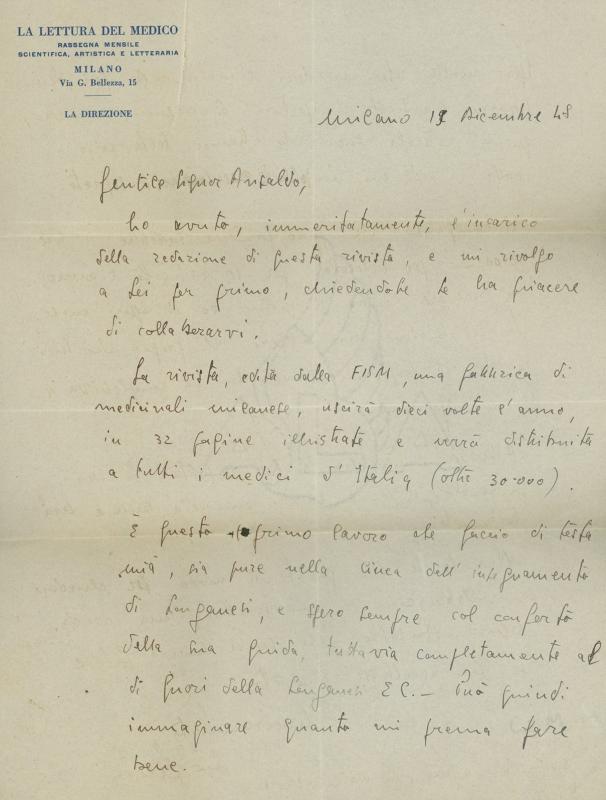 LA LETTURA DEL MEDICO
RASSEGNA MENSILE
SCIENTIFICA, ARTISTICA E LETTERARIA
MILANO
Via G. Bellezza, 15
LA DIREZIONE
Milano Dicembre 48
Gentile Signor Ansaldo,
ho avuto, immeritatamente, l'incarico
della redazione di questa rivista, e mi rivolgo
a Lei per primo, chiedendole se ha piacere
di collaborarvi.
La rivista, edita dalla FISM, una fabbrica di
medicinali milanese, uscirà dieci volte l'anno,
in 32 pagine illustrate e verrà distribuita
a tutti i medici d'Italia (oltre 30.000).
È questo primo lavoro che faccio di testa
mia, sia pure nella linea dell'insegnamento
di Longanesi, e spero sempre col conforto
della sua guida, tuttavia completamente al
di fuori della Longanesi E C. – Può quindi
immaginare quanto mi prema fare
bene.